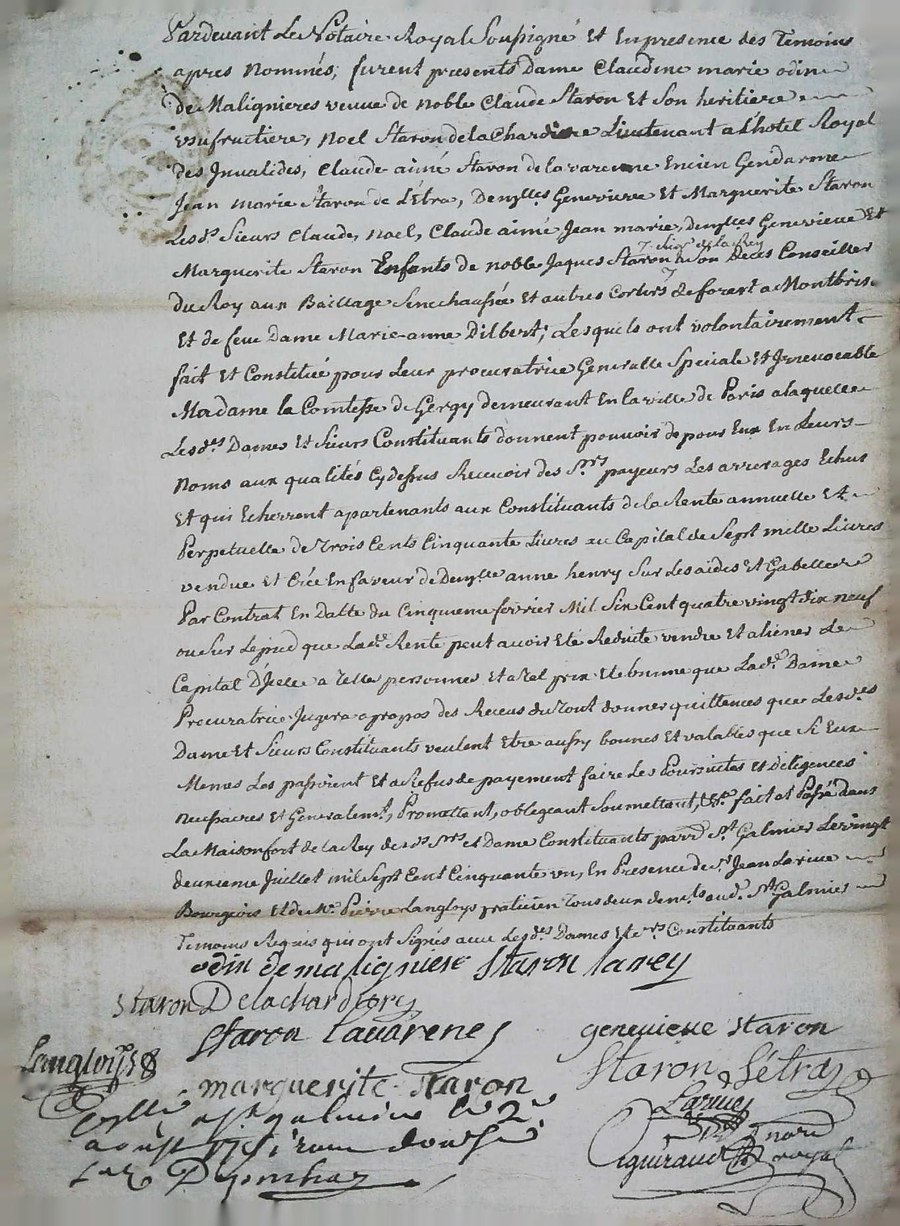 Pardevant Le Notaire Royal Soussigné Et En presence des Temoins
apres Nommés; furent presents Dame Claudine marie odin
de Malignieres veuve de noble Claude Staron Et Son heritiere
usufructiere, Noel Staron de la Chardiere Lieutenant a L'hotel Royal
des Invalides, Claude aimé Staron de la varenne Encien Gendarme
Jean marie Staron de L'Etra, Demlles Genevieve Et Marguerite Staron
Lesds Sieurs Claude, Noel, Claude aimé Jean marie, demlles Genevieve Et
7 Sigr de la Rey
Marguerite Staron Enfants de noble Jaques Staron 7 a Son Deces Conseiller
du Roy aux Bailliage Senechaussée Et autres Cours de forest a Montbrison
Et de feue Dame Marie-anne Dilbert; Lesquels ont volontairement
fait Et Constitué pour Leur procuratrice Generalle Speciale Et Irrevocable
Madame la Comtesse de Gergy demeurant En la ville de Paris a laquelle
Lesdes Dames Et Sieurs Constituants donnent pouvoir de pour Eux En Leurs
noms aux qualités Cydessus Recevoir des Srs payeurs Les arrerages Echus
Et qui Echerront apartenants aux Constituants de la Rente annuelle Et
Perpetuelle de Trois Cents Cinquante Livres au Capital de Sept mille Livres
vendue Et Créé En faveur de Demlle anne henry Sur Les aides Et Gabelles
Par Contrat En Datte du Cinquieme fevrier Mil Six Cent quatre vingt dix neuf
ou Sur Le pied que Lade Rente peut avoir Eté Reduite vendre Et aliener Le
Capital D'Icelle a Telle personnes Et a Tel prix Et Comme que Lade Dame
Procuratrice Jugera a propos des Receus du Tout donner quittences que Lesdes
Dame Et Sieurs Constituants veulent Etre aussy bonnes Et valables que Si Eux
Memes Les passoient Et a Refus de payement faire Les Poursuites Et Diligences
Necessaires Et Generalemt, Promettant, obligeant Soumettant, &c. fait et Passé dans
La Maison fort de la Rey desds Srs et Dame Constituants parr St Galmier Le vingt
deuxieme Juillet mil Sept Cent Cinquante un, En Presence de Sr Jean Larive
Bourgeois Et de Me Pierre Langloys praticien Tous deux demts aud. St Galmier
Temoins Requis qui ont Signés avec Lesdes Dames Et Srs Constituants
odin de malignière Staron larey
Staron Delachardiere
Staron lavarene genevieve staron
Langloys Staron Létra
marguerite staron
Larive
a st galmier le 2e
aoust 1751
guiraud No royal